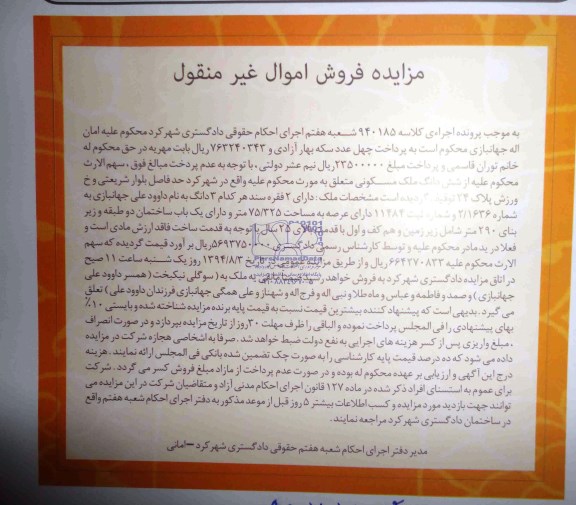 مزایده فروش اموال غیر منقول
به موجب پرونده اجرایی کلاسه ۹۴۰۱۸۵ شعبه هفتم اجرای احکام حقوقی دادگستری شهرکرد محکوم علیه امان
اله جهانبازی محکوم است به پرداخت چهل عدد سکه بهار آزادی و ۷۶۳۲۴۰۳۴۳ ریال بابت مهریه در حق محکوم له
خانم توران قاسمی و پرداخت مبلغ ۲۳۵۰۰۰۰۰ ریال نیم عشر دولتی ، با توجه به عدم پردخت مبالغ فوق ، سهم الارث
محکوم علیه از شش دانگ ملک مسکونی متعلق به مورث محکوم علیه واقع در شهرکرد حد فاصل بلوار شریعتی و خ
ورزش پلاک ۲۴ توقیف گردیده است مشخصات ملک : دارای ۲ فقره سند هر کدام ۳ دانگ به نام داوود علی جهانبازی به
شماره ۲/۱۶۳۶ و شماره ثبت ۱۱۴۸۴ دارای عرصه به مساحت ۷۵/۳۲۵ متر و دارای یک باب ساختمان دو طبقه و زیر
بنای ۲۹۰ متر شامل زیر زمین و هم کف و اول با قدمت بالای ۲۵ سال با توجه به قدمت ساخت فاقد ارزش مادی است و
فعلا در ید مادر محکوم علیه و توسط کارشناس رسمی دادگستری ریال بر آورد قیمت گردیده که سهم
الارث محکوم علیه ۶۶۴۲۷۰۸۳۳ ریال و از طریق مزایده عمومی در تاریخ ۱۳۹۴/۸/۳ روز یک شنبه ساعت ۱۱ صبح
در اتاق مزایده دادگستری شهرکرد به فروش خواهد رسید ملک به ( سوگلی نیکبخت ( همسر داوود علی
جهانبازی ) و صمد و فاطمه و عباس و ماه طلا و نبی اله و فرج اله و شهناز و علی همگی جهانبازی فرزندان داوود علی ) تعلق
می گیرد. بدیهی است که پیشنهاد کننده بیشترین قیمت نسبت به قیمت پایه برنده مزایده شناخته شده و بایستی ۱۰٪
بهای پیشنهادی را فی المجلس پرداخت نموده و الباقی را ظرف مهلت ۳۰ روز از تاریخ مزایده بپردازد و در صورت انصراف
، مبلغ واریزی پس از کسر هزینه های اجرایی به نفع دولت ضبط خواهد شد. صرفا به اشخاصی اجازه شرکت در مزایده
داده می شود که ده درصد قیمت پایه کارشناسی را به صورت چک تضمین شده بانکی فی المجلس ارائه نمایند . هزینه
درج این آگهی و ارزیابی بر عهده محکوم له بوده و در صورت عدم پرداخت از مازاد مبلغ فروش کسر می گردد . شرکت
برای عموم به استسنای افراد ذکر شده در ماده ۱۲۷ قانون اجرای احکام مدنی آزاد و متقاضیان شرکت در این مزایده می
توانند جهت بازدید مورد مزایده و کسب اطلاعات بیشتر ۵ روز قبل از موعد مذکور به دفتر اجرای احکام شعبه هفتم واقع
در ساختمان دادگستری شهرکرد مراجعه نمایند.
مدیر دفتر اجرای احکام شعبه هفتم حقوقی دادگستری شهرکرد – امانی